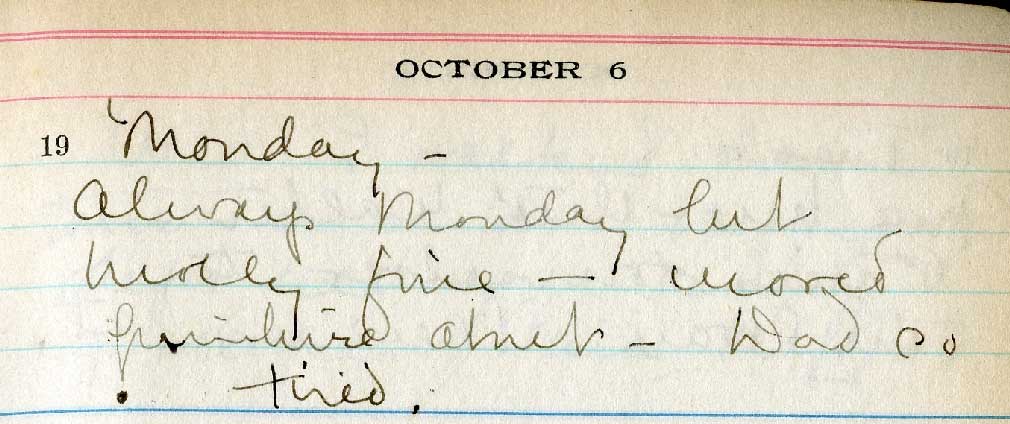 OCTOBER 6
19 Monday –
Always Monday but
Molly fine — moved
furniture about – Dad so
tired.